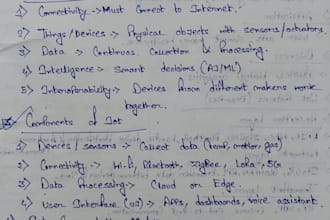 1) Connectivity -> Must connect to Internet.
2) Things/Devices -> Physical objects with sensors/actuators.
3) Data -> Continuous Collection & Processing.
4) Intelligence -> Smart decisions (AI/ML)
5) Interoperability -> Devices from different makers work
together.
Components of IoT
1) Devices/sensors -> Collect data (temp, motion, gas)
2) Connectivity -> Wi-fi, Bluetooth, ZigBee, LoRa, 5G
3) Data Processing -> Cloud or Edge.
4) User Interface (UI) -> Apps, dashboards, voice assistant